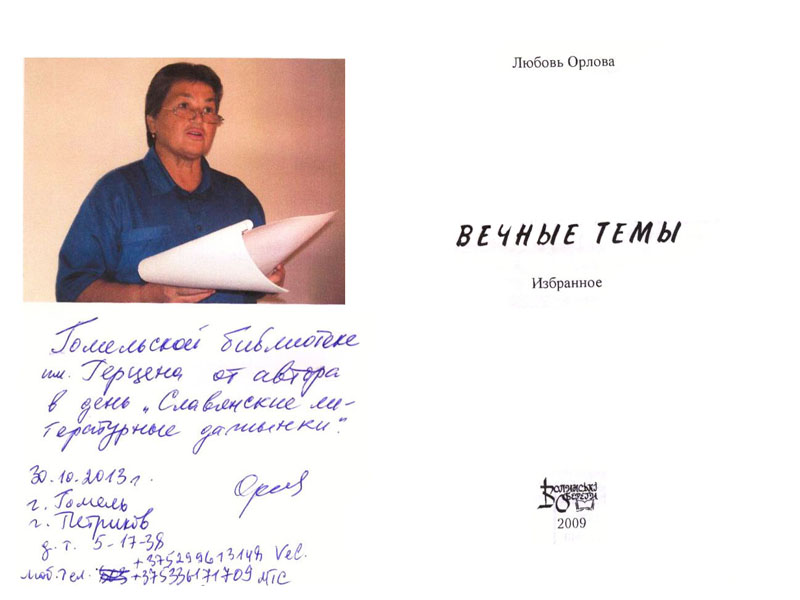 Гомельской библиотеке
им. Герцена от автора
в день „Славянские ли-
тературные дажынки".
30.10.2013 г.
г. Гомель
г. Петриков
д. т. 5-17-38
+375299613148 Vel.
моб. тел. +375336171709 МТС
Любовь Орлова
ВЕЧНЫЕ ТЕМЫ
Избранное
Волинські
Обереги
2009